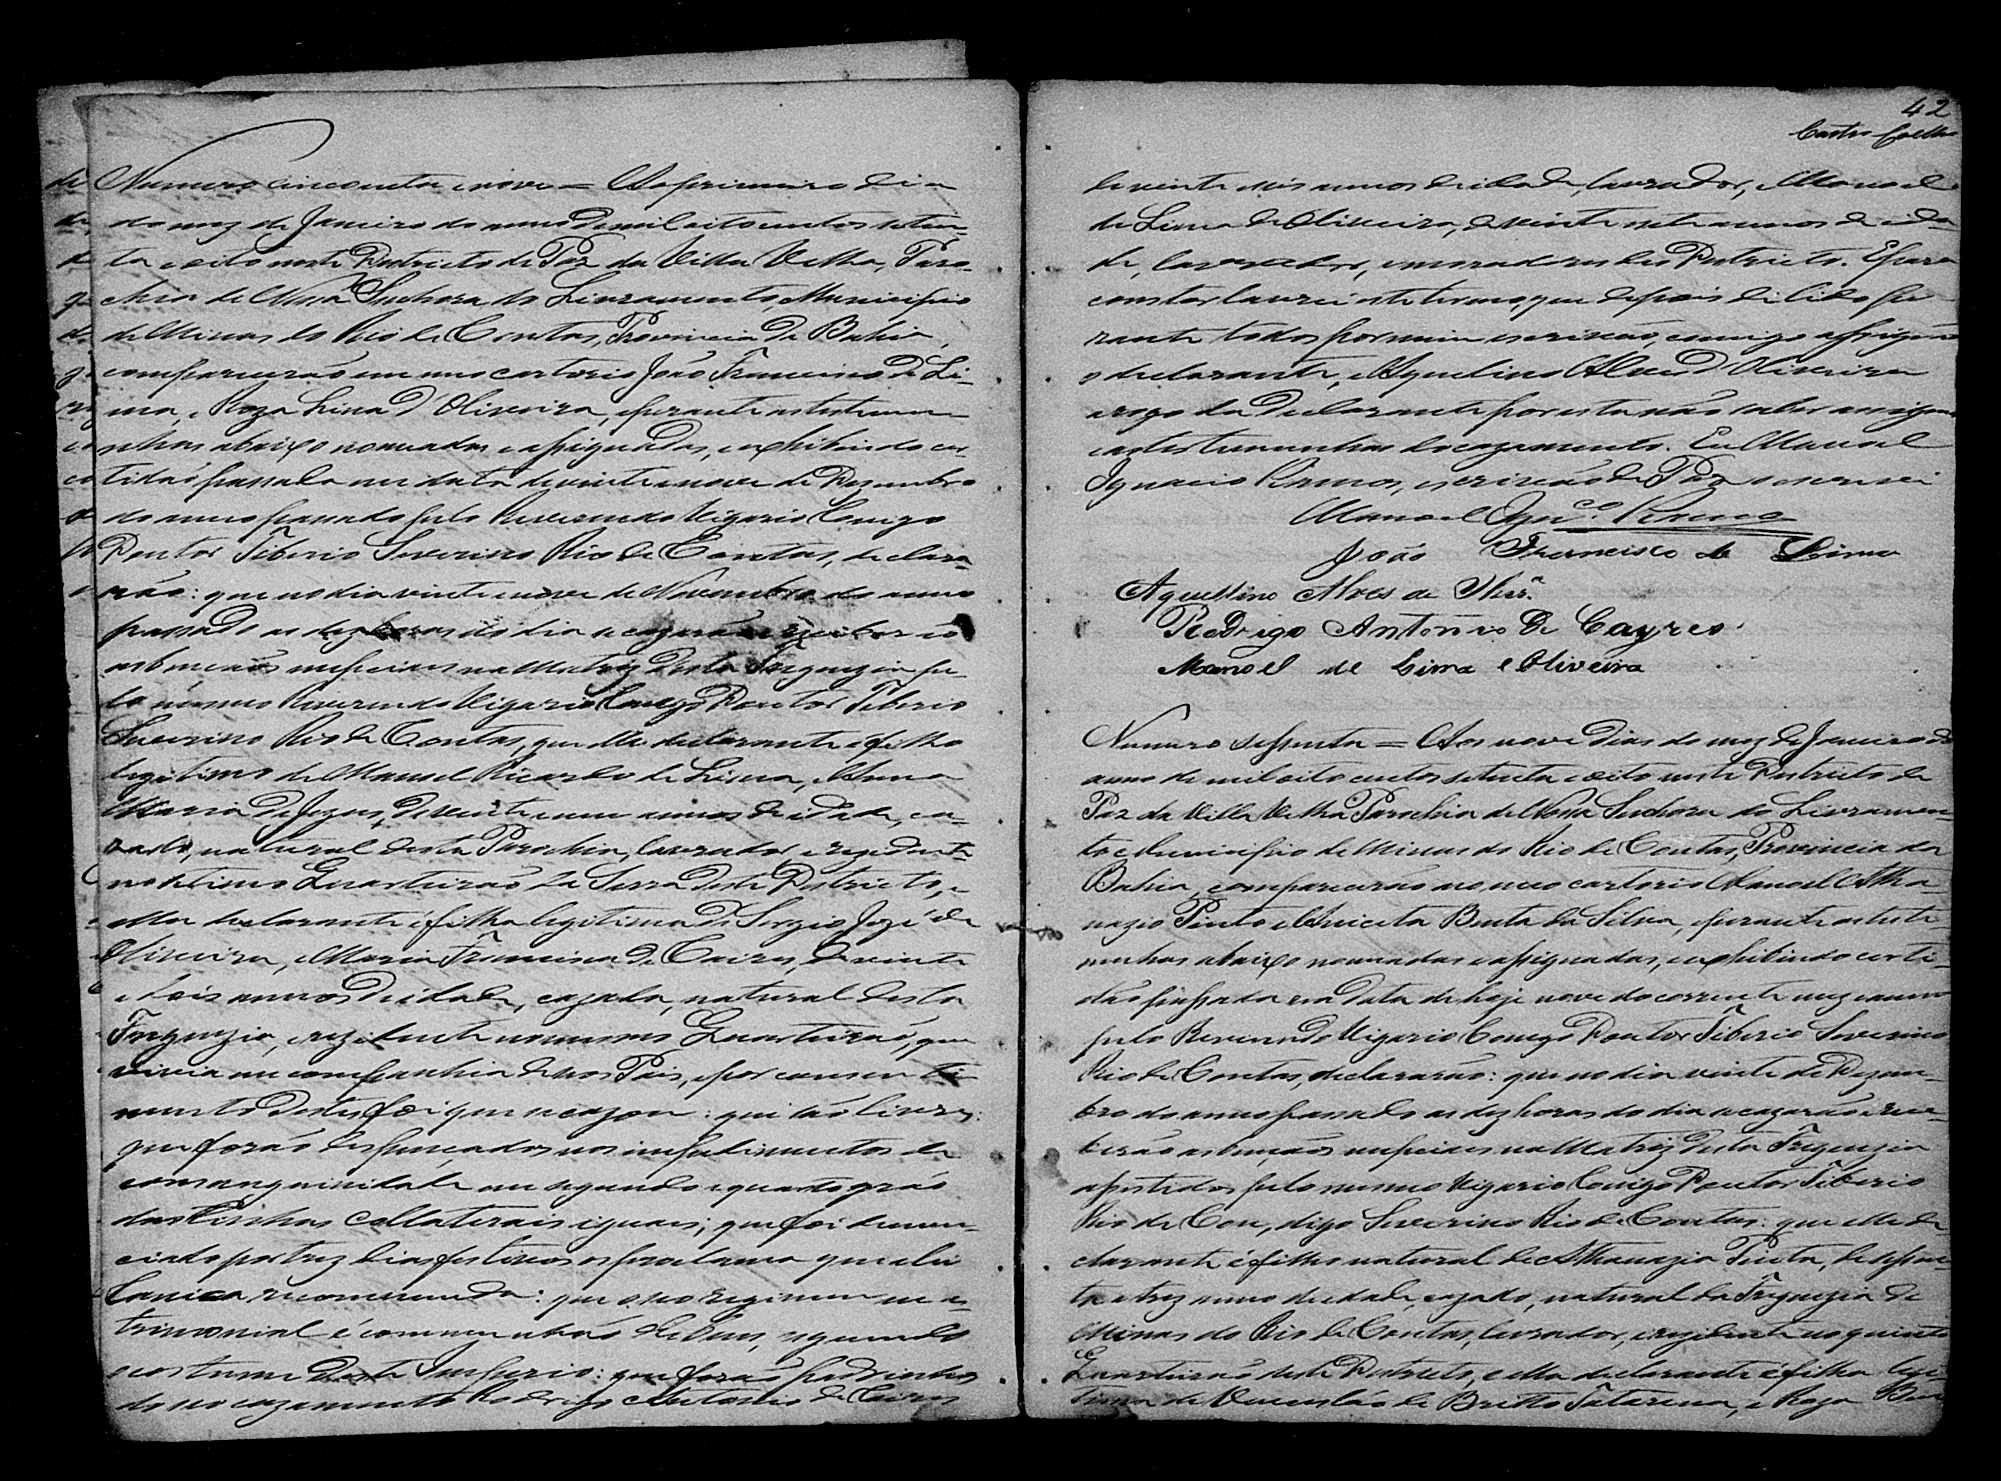 Numero cincoenta e nove = Ao primeiro dia
do mez de Janeiro do anno de mil oito centos setten-
ta e oito neste Destricto de Paz da Villa Velha, Paro-
chia de Nossa Senhora do Livramento, Municipio
de Minas do Rio de Contas, Provincia da Bahia,
comparecerão em meo cartorio João Francisco de Li-
ma, e Roza Lina d'Oliveira, e perante as testemu-
nhas abaixo nomeadas e assignadas, e exhibindo cer-
tidão passada em data de vinte e nove de Dezembro
do anno passado pelo Reverendo Vigario Conego
Doutor Tiberio Severino Rio de Contas, declara-
rão: que no dia vinte e nove de Novembro do anno
passado as dez horas do dia se cazarão e receberão
as bençãos nupciaes na Matriz desta Freguezia pe-
lo mesmo Reverendo Vigario Conego Doutor Tiberio
Severino Rio de Contas, que elle declarante é filho
legitimo de Manoel Ricardo de Lima, e Anna
Maria de Jezus, de vinte e um annos de idade, ca-
zado, natural desta Parochia, lavrador e rezidente
no Quarteirão da Serra deste Destricto, e
ella declarante é filha legitima de Sergio Jozé de
Oliveira, e Maria Francisca de Caires, de vinte
e dois annos de idade, cazada, natural desta
Freguezia, e rezidente no mesmo Quarteirão, que
vivia em companhia de seos Pais, e por consenti-
mento destes foi que se cazou: que são livres:
que forão despençados nos impedimentos de
consanguinidade em segundo e quarto gráo
das Linhas Collateraes iguaes; que foi denun-
ciado por trez dias festivos os proclamas que a lei
Canica recommenda: que o seo regimen ma-
trimonial é commenhão de bens, segundo
o costume deste Imperio: que forão padrinhos
do seo cazamento Rodrigo Antonio de Caires
42
Castro Coelho
de vinte e seis annos de idade, lavrador, e Manoel
de Lima de Oliveira, de vinte e sete annos de ida-
de, lavrador, e moradores deste Destricto. E para
constar lavrei este termo, que depois de lido pe-
rante todos por mim escrivão, comigo assignão
o declarante, e Aquelino Alves d'Oliveira
a rogo da declarante por esta não saber assignar
e as testemunhas do cazamento. Eu Manoel
Ignacio Ramos, escrivão de Paz o escrevi
Manoel Ignco. Ramos
João Francisco de Lima
Aquellino Alves de Olivrª.
Rodrigo Antonio de Cayres
Manoel de Lima e Oliveira
Numero sessenta = Aos nove dias do mez de Janeiro do
anno de mil oito centos setenta e oito neste Destricto de
Paz da Villa Velha Parochia de Nossa Senhora do Livramen-
to e Municipio de Minas do Rio de Contas, Provincia da
Bahia, comparecerão no meo cartorio Manoel Atha-
nazio Pinto e Aniceta Benta da Silva, e perante as teste-
munhas abaixo nomeadas e assignadas, e exhibindo certi-
dão passada em data de hoje nove do corrente mez e anno
pelo Reverendo Vigario Conego Doutor Tiberio Severino
Rio de Contas, declararão: que no dia vinte de Dezem-
bro do anno passado as dez horas do dia se cazarão e rece-
berão as bençãos nupciaes na Matriz desta Freguezia
assistidos pelo mesmo Vigario Conego Doutor Tiberio
Rio de Con, digo Severino Rio de Contas: que elle de-
clarante é filho natural de Athanazia Pinta, de
e trez anno de idade, cazado, natural da Freguezia de
Minas do Rio de Contas, lavrador, e rezidente no quinto
Quarteirão deste Destricto, e ella declarante é filha legi-
tima de Venceslão de Britto e Roza